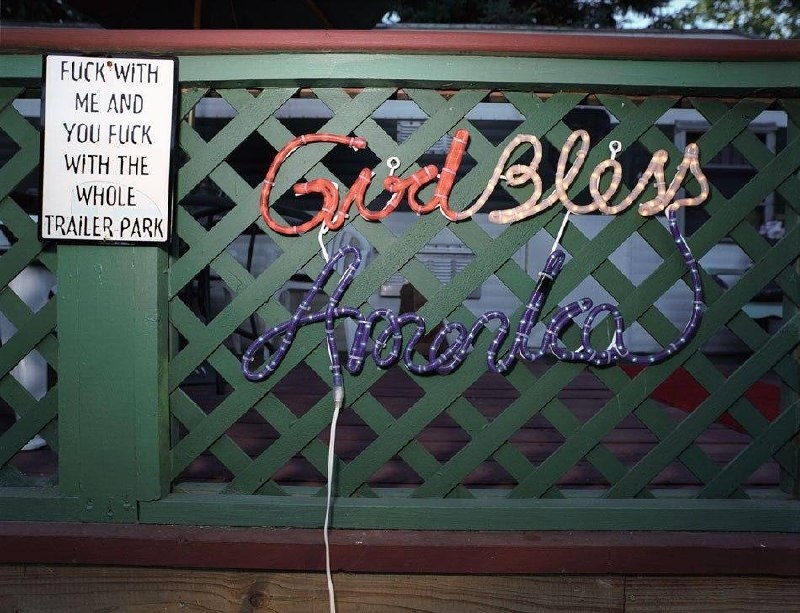 FUCK WITH
ME AND
YOU FUCK
WITH THE
WHOLE
TRAILER PARK
God Bless
America